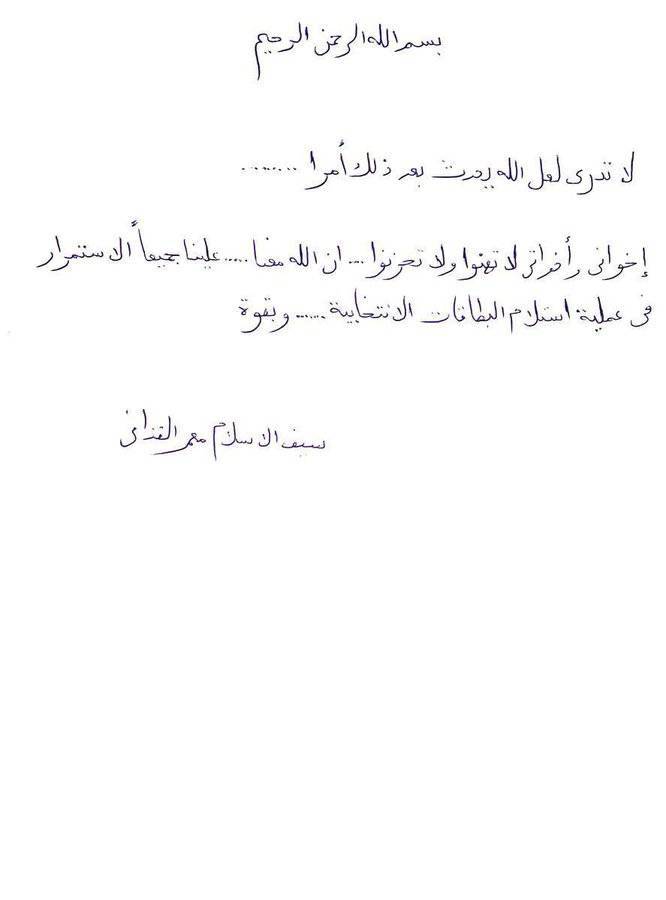 بسم الله الرحمن الرحيم
لا تدرى لعل الله يحدث بعد ذلك أمرا ........
إخوانى وأخواتى لا تهنوا ولا تحزنوا .... ان الله معنا ..... علينا جميعاً الاستمرار
فى عملية استلام البطاقات الانتخابية ...... وبقوة
سيف الاسلام معمر القذافى